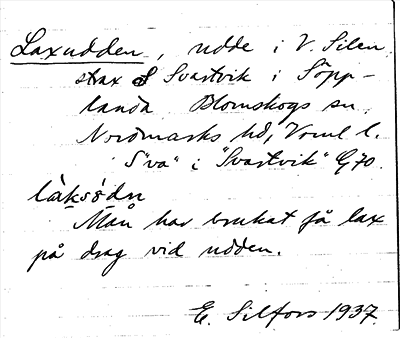 Laxudden, udde i V. Silen
strax S Svartvik i Sopp-
landa Blomskogs sn
Nordmarks hd, Vrml l.
S "va" i "Svartvik" G70.
làksø̀dṇ
Man har brukat få lax
på drag vid udden.
E. Silfors 1937.